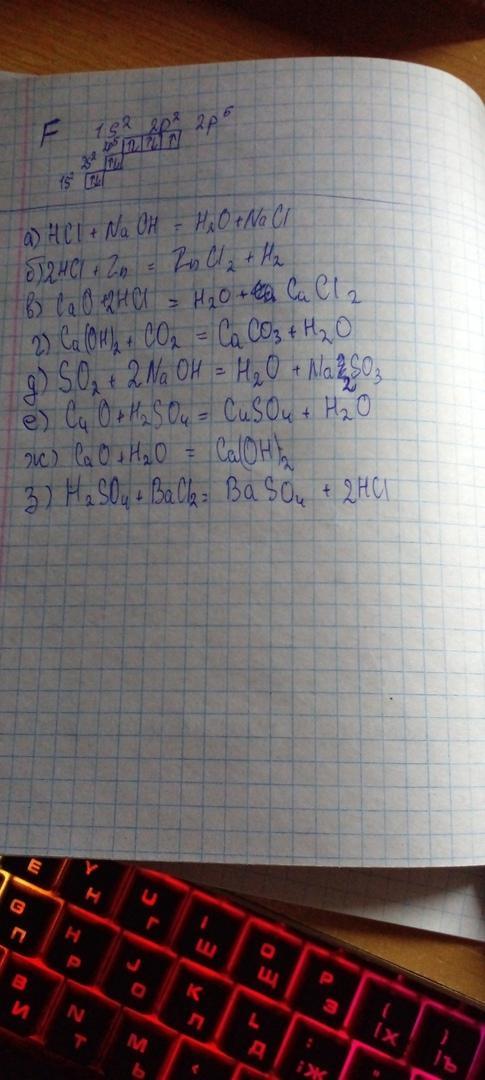 F 1s² 2p² 2p⁵
2s² 2p⁵ ↑↓ ↑↓ ↑
1s² ↑↓
а) HCl + NaOH = H₂O + NaCl
б) 2HCl + Zn = ZnCl₂ + H₂
в) CaO + 2HCl = H₂O + CaCl₂
г) Ca(OH)₂ + CO₂ = CaCO₃ + H₂O
д) SO₂ + 2NaOH = H₂O + Na₂SO₃
е) CuO + H₂SO₄ = CuSO₄ + H₂O
ж) CaO + H₂O = Ca(OH)₂
з) H₂SO₄ + BaCl₂ = BaSO₄ + 2HCl
E Y U I O P { }
Н Г Ш Щ З Х Ъ
G H J K L :
П Р О Л Д Ж
B N M <
И Т Ь